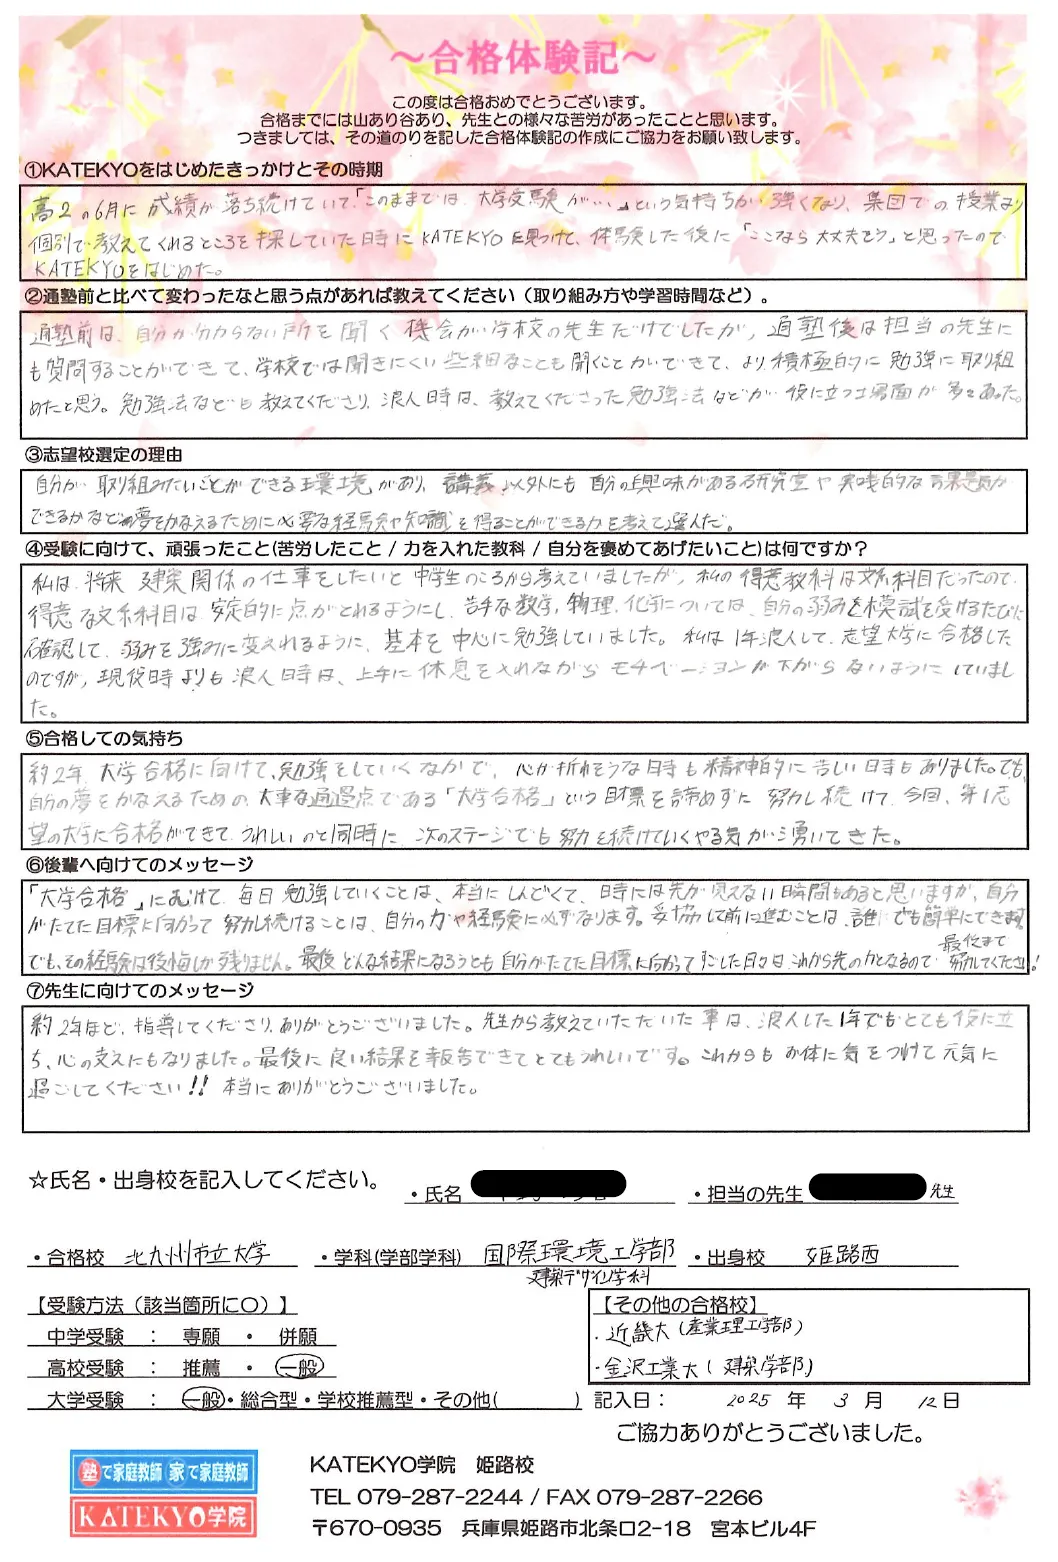 ～合格体験記～
この度は合格おめでとうございます。
合格までには山あり谷あり、先生との様々な苦労があったことと思います。
つきましては、その道のりを記した合格体験記の作成にご協力をお願い致します。
①KATEKYOをはじめたきっかけとその時期
高2の6月に成績が落ち続けていて「このままでは、大学受験が…」という気持ちが強くなり、集団での授業より
個別で教えてくれるところを探していた時にKATEKYOを見つけて、体験した後に「ここなら大丈夫そう」と思ったので
KATEKYOをはじめた。
②通塾前と比べて変わったなと思う点があれば教えてください（取り組み方や学習時間など）。
通塾前は、自分が分からない所を聞く機会が学校の先生だけでしたが、通塾後は担当の先生に
も質問することができて、学校では聞きにくい些細なことも聞くことができて、より積極的に勉強に取り組
めたと思う。勉強法なども教えてくださり、浪人時は、教えてくださった勉強法などが役に立つ場面が多々あった。
③志望校選定の理由
自分が取り組みたいことができる環境があり、講義以外にも自分の興味がある研究室や実践的な課題が
できるかなどの夢をかなえるために必要な経験や知識を得ることができるかを考えて選んだ。
④受験に向けて、頑張ったこと(苦労したこと / 力を入れた教科 / 自分を褒めてあげたいこと)は何ですか？
私は、将来建築関係の仕事をしたいと中学生のころから考えていましたが、私の得意教科は文系科目だったので、
得意な文系科目は安定的に点がとれるようにし、苦手な数学、物理、化学については、自分の弱みを模試を受けるたびに
確認して、弱みを強みに変えれるように、基本を中心に勉強していました。私は1年浪人して、志望大学に合格した
のですが、現役時よりも浪人時は、上手に休息を入れながらモチベーションが下がらないようにしていまし
た。
⑤合格しての気持ち
約2年、大学合格に向けて、勉強をしていくなかで、心が折れそうな時も精神的に苦しい時もありました。でも、
自分の夢をかなえるための、大事な通過点である「大学合格」という目標を諦めずに努力し続けて、今回、第1志
望の大学に合格ができて、うれしいのと同時に、次のステージでも努力を続けていくやる気が湧いてきた。
⑥後輩へ向けてのメッセージ
「大学合格」にむけて、毎日勉強していくことは、本当にしんどくて、時には先が見えない瞬間もあると思いますが、自分
がたてた目標に向かって努力し続けることは、自分の力や経験に必ずなります。妥協して前に進むことは、誰にでも簡単にできます。
でも、その経験は後悔しか残りません。最後どんな結果になろうとも自分がたてた目標に向かってすごした日々は、これから先の力となるので最後まで努力してください!
⑦先生に向けてのメッセージ
約2年ほど、指導してくださり、ありがとうございました。先生から教えていただいた事は、浪人した1年でもとても役に立
ち、心の支えにもなりました。最後に良い結果を報告できてとてもうれしいです。これからもお体に気をつけて元気に
過ごしてください!! 本当にありがとうございました。
☆氏名・出身校を記入してください。
・氏名 ・担当の先生 先生
・合格校 北九州市立大学 ・学科(学部学科) 国際環境工学部 ・出身校 姫路西
建築デザイン学科
【受験方法（該当箇所に〇）】 【その他の合格校】
中学受験 ： 専願 ・ 併願 ・近畿大(産業理工学部)
高校受験 ： 推薦 ・ 一般 ・金沢工業大(建築学部)
大学受験 ： 一般・総合型・学校推薦型・その他( ) 記入日： 2025 年 3 月 12 日
ご協力ありがとうございました。
塾で家庭教師 家で家庭教師
KATEKYO学院
KATEKYO学院 姫路校
TEL 079-287-2244 / FAX 079-287-2266
〒670-0935 兵庫県姫路市北条口2-18 宮本ビル4F